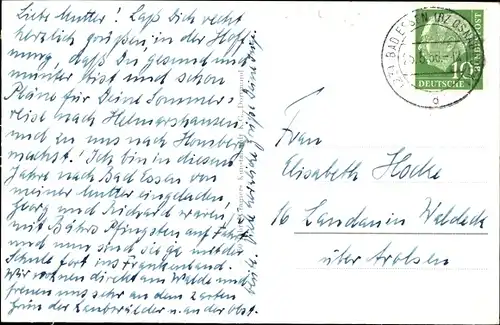 Liebe Mutter! Laß Dich recht
herzlich grüßen, in der Hoff
nung, daß Du gesund und
munter bist und schon
Pläne für Deine Sommer-
reise nach Helmarshausen
und zu uns nach Homberg
machst! Ich bin in diesem
Jahre nach Bad Essen von
meiner Mutter eingeladen,
Georg und Richard waren,
mit Pfingsten auf Fahrt
und nun sind sie ja mit der
Schule fort ins Frankenland.
Wir wohnen direkt am Walde und
freuen uns sehr an dem zarten
Grün der Laubwälder u. an der Obst-
BAD ESSEN (BZ OSNABRÜCK)
d
10
DEUTSCHE
Frau
Elisabeth Hocke
16 Landau in Waldeck
über Arolsen